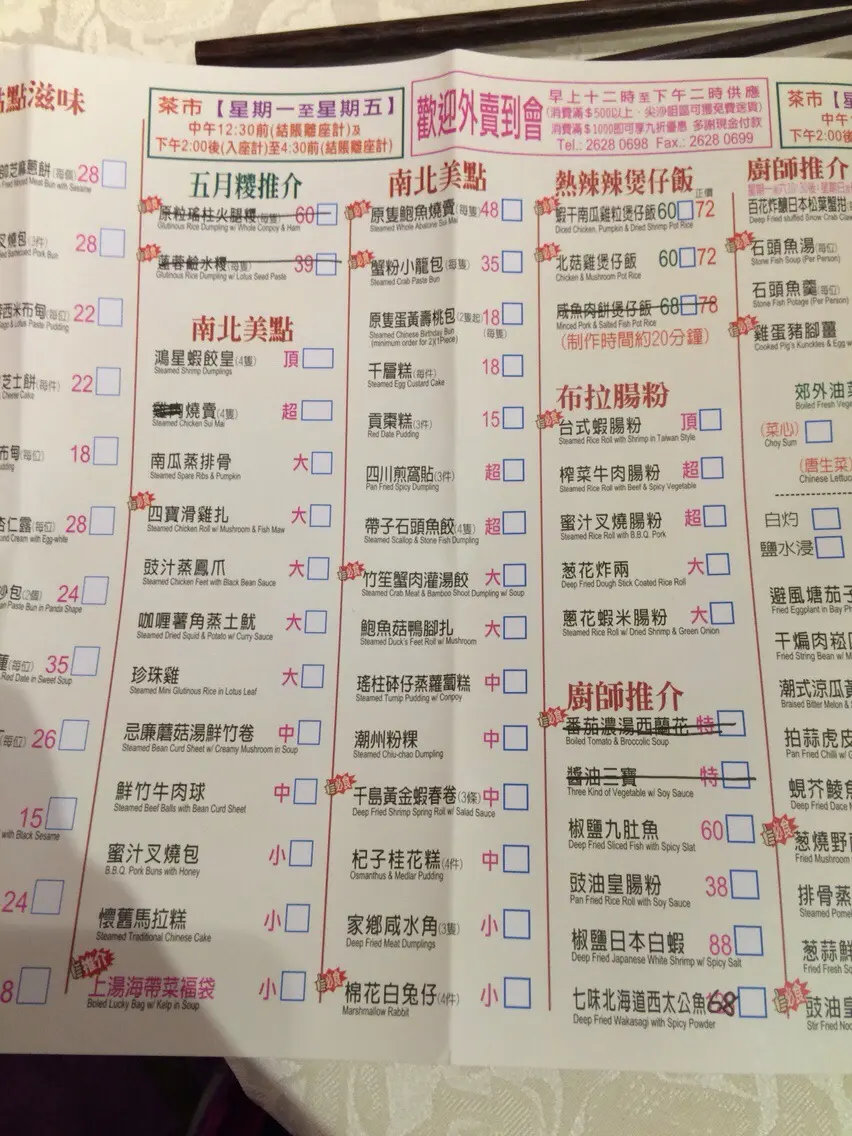 點滋味
芝麻煎餅(每個) 28
Fried Minced Meat Bun with Sesame
叉燒包(3件) 28
Barbecued Pork Bun
西米布甸(每位) 22
Sago & Lotus Paste Pudding
芝士餅(每件) 22
Cheese Cake
布甸(每位) 18
杏仁露(每位) 28
Almond Cream with Egg-white
沙包(2個) 24
Bean Paste Bun in Panda Shape
(每位) 35
Red Date in Sweet Soup
(每位) 26
15
with Black Sesame
24
8
茶市【星期一至星期五】
中午12:30前(結賬離座計)及
下午2:00後(入座計)至4:30前(結賬離座計)
五月糉推介
原粒瑤柱火腿糉(每隻) 60
Glutinous Rice Dumpling w/ Whole Conpoy & Ham
蓮蓉鹼水糉(每隻) 39
Glutinous Rice Dumpling w/ Lotus Seed Paste
南北美點
鴻星蝦餃皇(4隻) 頂
Steamed Shrimp Dumplings
雞肉燒賣(4隻) 超
Steamed Chicken Sui Mai
南瓜蒸排骨 大
Steamed Spare Ribs & Pumpkin
四寶滑雞扎 大
Steamed Chicken Roll w/ Mushroom & Fish Maw
豉汁蒸鳳爪 大
Steamed Chicken Feet with Black Bean Sauce
咖喱薯角蒸土魷 大
Steamed Dried Squid & Potato w/ Curry Sauce
珍珠雞 大
Steamed Mini Glutinous Rice in Lotus Leaf
忌廉蘑菇湯鮮竹卷 中
Steamed Bean Curd Sheet w/ Creamy Mushroom in Soup
鮮竹牛肉球 中
Steamed Beef Balls with Bean Curd Sheet
蜜汁叉燒包 小
B.B.Q. Pork Buns with Honey
懷舊馬拉糕 小
Steamed Traditional Chinese Cake
上湯海帶菜福袋 小
Boiled Lucky Bag w/ Kelp in Soup
歡迎外賣到會
早上十二時至下午二時供應
(消費滿$500以上、尖沙咀區可獲免費送貨)
消費滿$1000即可享九折優惠 多謝現金付款
Tel.: 2628 0698 Fax.: 2628 0699
南北美點
原隻鮑魚燒賣(每隻) 48
Steamed Whole Abalone Sui Mai
蟹粉小龍包(每隻) 35
Steamed Crab Paste Bun
原隻蛋黃壽桃包(2隻起) 18
Steamed Chinese Birthday Bun (每隻)
(minimum order for 2)(1Piece)
千層糕(每件) 18
Steamed Egg Custard Cake
貢棗糕(3件) 15
Red Date Pudding
四川煎窩貼(3件) 超
Pan Fried Spicy Dumpling
帶子石頭魚餃(4隻) 超
Steamed Scallop & Stone Fish Dumpling
竹笙蟹肉灌湯餃 大
Steamed Crab Meat & Bamboo Shoot Dumpling w/ Soup
鮑魚菇鴨腳扎 大
Steamed Duck's Feet Roll w/ Mushroom
瑤柱砵仔蒸蘿蔔糕 中
Steamed Turnip Pudding w/ Conpoy
潮州粉粿 中
Steamed Chiu-chao Dumpling
千島黃金蝦春卷(3條) 中
Deep Fried Shrimp Spring Roll w/ Salad Sauce
杞子桂花糕(4件) 中
Osmanthus & Medlar Pudding
家鄉咸水角(3隻) 小
Deep Fried Meat Dumplings
棉花白兔仔(4件) 小
Marshmallow Rabbit
熱辣辣煲仔飯 正價
蝦干南瓜雞粒煲仔飯 60 72
Diced Chicken, Pumpkin & Dried Shrimp Pot Rice
北菇雞煲仔飯 60 72
Chicken & Mushroom Pot Rice
咸魚肉餅煲仔飯 68 78
Minced Pork & Salted Fish Pot Rice
(制作時間約20分鐘)
布拉腸粉
台式蝦腸粉 頂
Steamed Rice Roll with Shrimp in Taiwan Style
榨菜牛肉腸粉 超
Steamed Rice Roll with Beef & Spicy Vegetable
蜜汁叉燒腸粉 超
Steamed Rice Roll with B.B.Q. Pork
葱花炸兩 大
Deep Fried Dough Stick Coated Rice Roll
葱花蝦米腸粉 大
Steamed Rice Roll w/ Dried Shrimp & Green Onion
廚師推介
番茄濃湯西蘭花 特
Boiled Tomato & Broccolic Soup
醬油三寶 特
Three Kind of Vegetable w/ Soy Sauce
椒鹽九肚魚 60
Deep Fried Sliced Fish with Spicy Slat
豉油皇腸粉 38
Pan Fried Rice Roll with Soy Sauce
椒鹽日本白蝦 88
Deep Fried Japanese White Shrimp w/ Spicy Salt
七味北海道西太公魚 68
Deep Fried Wakasagi with Spicy Powder
茶市【星
中午1
下午2:00後
廚師推介
百花炸釀日本松葉蟹拑
Deep Fried stuffed Snow Crab Claw
石頭魚湯(每位)
Stone Fish Soup (Per Person)
石頭魚羹(每位)
Stone Fish Potage (Per Person)
雞蛋豬腳薑
Cooked Pig's Kunckles & Egg w
郊外油菜
Boiled Fresh Vege
(菜心)
Choy Sum
(唐生菜)
Chinese Lettuc
白灼
鹽水浸
避風塘茄子
Fried Eggplant in Bay Ph
干煸肉崧
Fried String Bean w/ M
潮式涼瓜
Braised Bitter Melon &
拍蒜虎皮
Pan Fried Chilli w/ G
蜆芥鯪魚
Deep Fried Dace
葱燒野
Fried Mushroom
排骨蒸
Steamed Pome
葱蒜鮮
Fried Fresh So
豉油皇
Stir Fried Noo